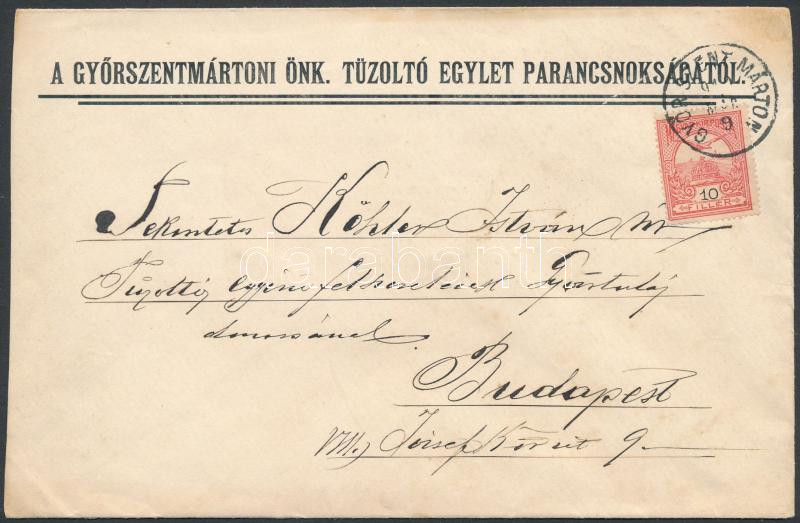 A GYŐRSZENTMÁRTONI ÖNK. TŰZOLTÓ EGYLET PARANCSNOKSÁGÁTÓL.
GYŐRSZENT-MÁRTON
10
FILLÉR
Tekintetes Köhler István úr
Tűzoltó Gyártulaj
donosának
Budapest
VIII, József Körút 9
darabanth